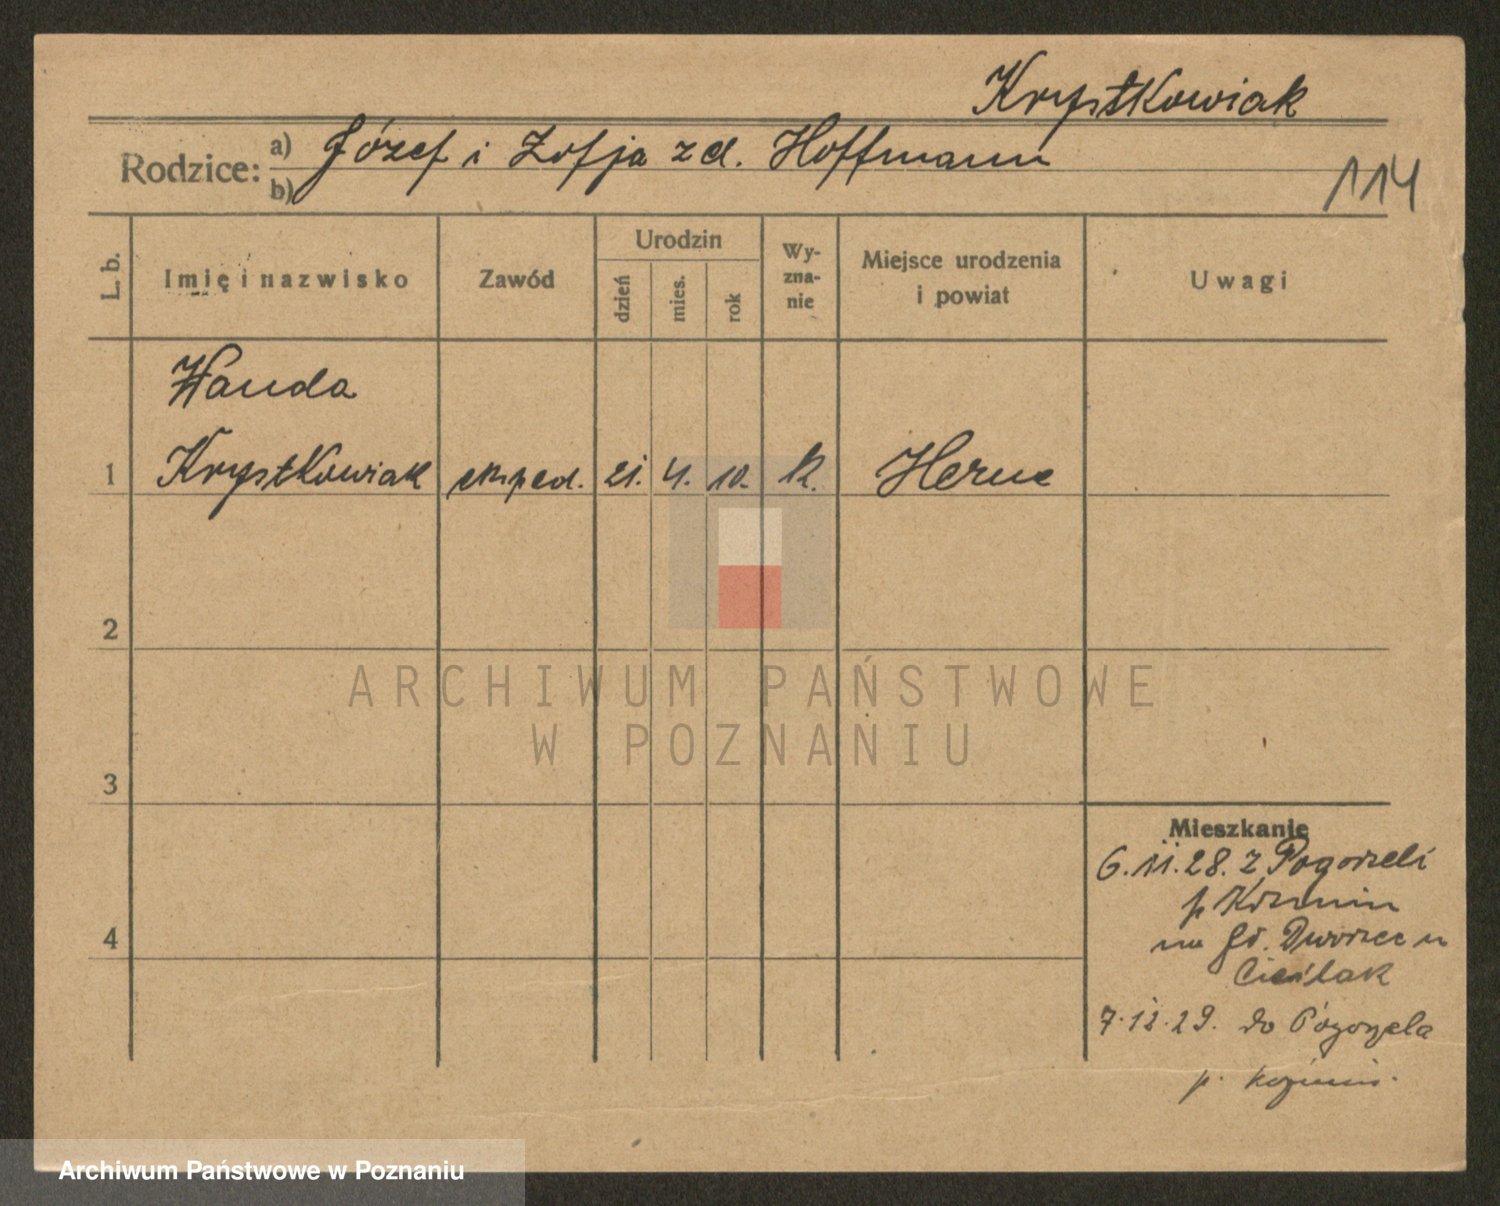 Krystkowiak
Rodzice: a) Józef i Zofja z d. Hoffmann
b)
114
L. b.
Imię i nazwisko
Zawód
Urodzin
dzień
mies.
rok
Wy-
zna-
nie
Miejsce urodzenia
i powiat
Uwagi
Wanda
1 Krystkowiak eksped. 21. 4. 10. k. Herne
2
3
4
ARCHIWUM PAŃSTWOWE
W POZNANIU
Mieszkanie
6.11.28. z Pogorzeli
p Koźmin
na Gł. Dworzec u
Cieślak
7.12.29. do Pogorzela
p. Koźmin.
Archiwum Państwowe w Poznaniu